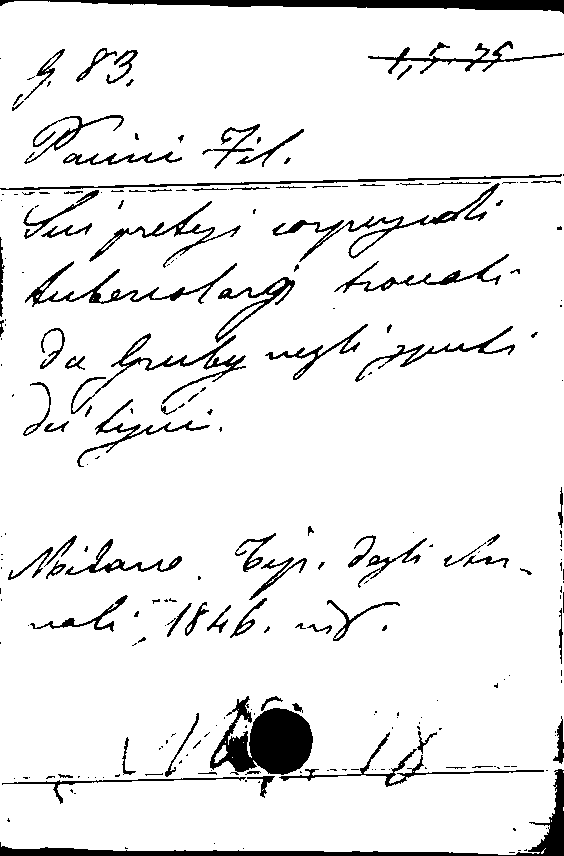 G. 83. 1, 5. 75
Panini Fil.
Sui pretesi corpuscoli
tubercolari trovati
da Gruby negli sputi
dei tisici.
Milano. Tip. degli An-
nali, 1846. in 8.